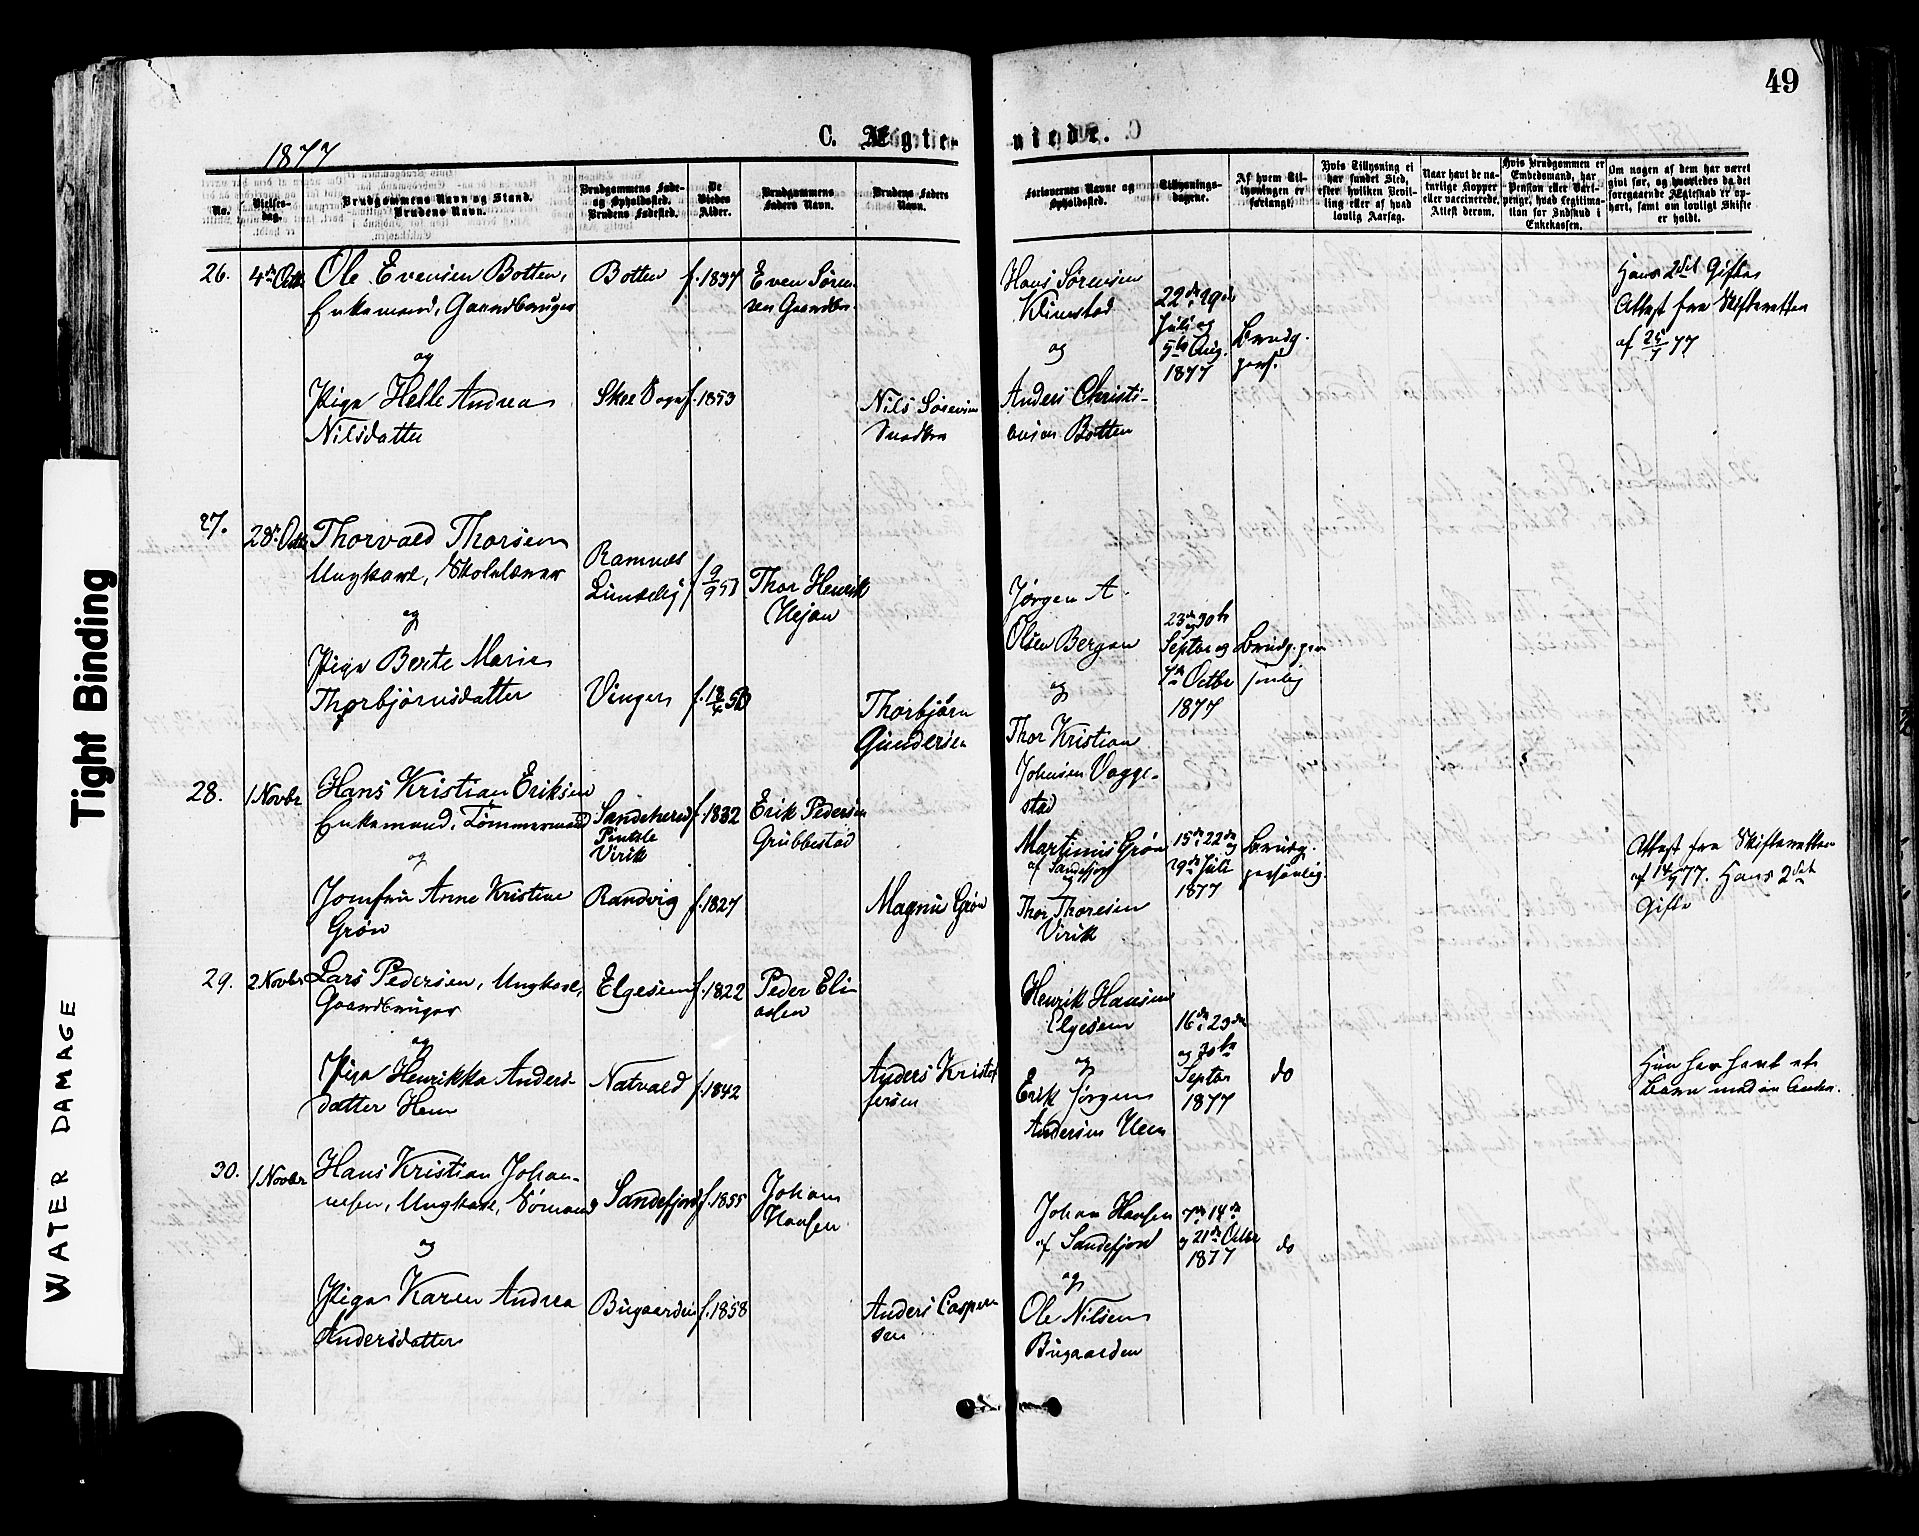 49
C. Ægtevviede.
1877
No.
Vielses-
dag.
Brudgommens Navn og Stand.
Brudens Navn.
Brudgommens Føde-
og Opholdssted.
Brudens Fødested.
De
Viedes
Alder.
Brudgommens
Faders Navn.
Brudens Faders
Navn.
Forlovernes Navne og
Opholdssted.
Tillysnings-
dagene.
Af hvem Til-
lysningen er
forlangt.
Hvis Tillysning ei
har fundet Sted,
efter hvilken Bevil-
ling eller af hvad
lovlig Aarsag.
Naar havt de na-
turlige Kopper
eller vaccinerede,
Attest derom.
Hvis Brudgommen er
Embedsmand, har
Pension eller Vart-
penge, hvad Legitima-
tion for Indskud i
Enkekassen.
Om nogen af dem har været
givt før, og hvorledes da det
foregaaende Ægteskab er op-
hørt, samt om lovligt Skifte
er holdt.
26.
4de Octbr
Ole Evensen Botten,
Enkemand, Gaardbruger
og
Pige Helle Andrea
Nilsdatter
Botten
f. 1837
Even Søren-
sen Gaardbr.
f. 1853
Nils Sørensen
Hans Sørensen
Klinestad
og
Anders Christi-
ansen Botten
22de 29de
Juli og
5te Aug.
1877
Brudg.
pers.
Hans 2det Gifte
Attest fra Skifteretten
af 25/7 77
27.
28de Octbr
Thorvald Thorsen
Ungkarl, Skolelærer
og
Pige Berte Marie
Thorbjørnsdatter
Ramnæs
f 9/9 53
Thor Henrik
Vinger
Thorbjørn
Gundersen
Jørgen A.
Olsen Bergan
og
Thor Kristian
Johnsen Vagge-
stad
23de 30te
Septbr og
7de Octbr
1877
Brudg. per
sonlig
28.
1 Novbr
Hans Kristian Eriksen
Enkemand, Tømmermand
og
Jomfru Anne Kristine
Grøn
Sandeherred
Pindsle
Virik
f. 1832
Erik Pedersen
Grubbestad
Randvig
f. 1827
Magnus Grøn
Martinius Grøn
af Sandefjord
og
Thor Thoresen
Virik
15de 22de og
29de Juli
1877
Brudg.
personlig.
Attest fra Skifteretten
af 14/7 77. Hans 2det
Gifte
29.
2 Novbr
Lars Pedersen, Ungkarl,
Gaardbruger
og
Pige Henrikka Anders-
datter Hem
Elgesem
f. 1822
Peder Eli-
assen
Natvald
f. 1842
Anders Kristof
fersen
Henrik Hansen
Elgesem
og
Erik Jørgen
Andersen Hem
16de 23de
og 30te
Septbr
1877
do
Hun har havt et
Barn med en Anden.
30.
1 Novbr
Hans Kristian Johan-
nesen, Ungkarl, Sømand
og
Pige Karen Andrea
Andersdatter
Sandefjord
f. 1855
Johan
Hansen
Bugaarden
f. 1858
Anders Casper-
sen
Johan Hansen
af Sandefjord
og
Ole Nilsen
Bugaarden
7de 14de
og 21de Octbr
1877
do
Tight Binding
WATER DAMAGE